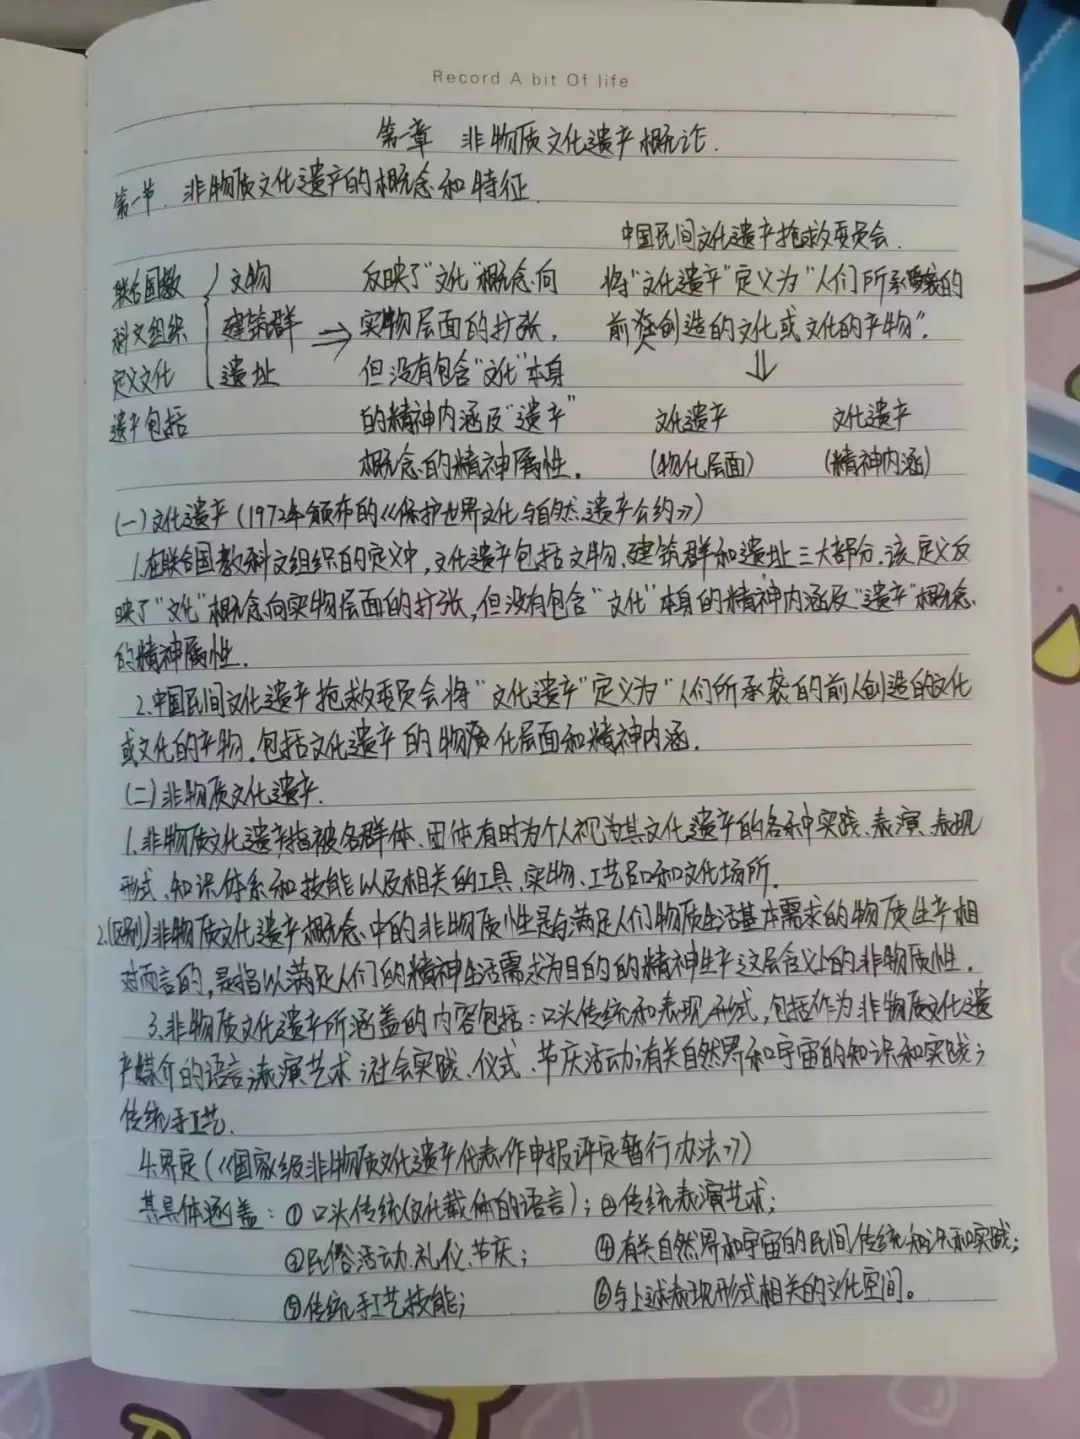 Record A bit Of life
第一章 非物质文化遗产概论.
第一节. 非物质文化遗产的概念和特征.
中国民间文化遗产抢救委员会.
联合国教 文物 反映了“文化”概念向 将“文化遗产”定义为“人们所承袭的
科文组织 建筑群 ⇒ 实物层面的扩张, 前人创造的文化或文化的产物”.
定义文化 遗址 但没有包含“文化”本身 ⇓
遗产包括 的精神内涵及“遗产” 文化遗产 文化遗产
概念的精神属性. (物化层面) (精神内涵)
(一)文化遗产(1972年颁布的《保护世界文化与自然遗产公约》)
1.在联合国教科文组织的定义中,文化遗产包括文物、建筑群和遗址三大部分.该定义反
映了“文化”概念向实物层面的扩张,但没有包含“文化”本身的精神内涵及“遗产”概念
的精神属性.
2.中国民间文化遗产抢救委员会将“文化遗产”定义为“人们所承袭的前人创造的文化
或文化的产物.包括文化遗产的物质化层面和精神内涵.
(二)非物质文化遗产.
1.非物质文化遗产指被各群体、团体有时为个人视为其文化遗产的各种实践、表演、表现
形式、知识体系和技能以及相关的工具、实物、工艺品和文化场所.
2.(区别)非物质文化遗产概念中的非物质性是与满足人们物质生活基本需求的物质生产相
对而言的,是指以满足人们的精神生活需求为目的的精神生产这层含义上的非物质性.
3.非物质文化遗产所涵盖的内容包括:口头传统和表现形式,包括作为非物质文化遗
产媒介的语言;表演艺术;社会实践、仪式、节庆活动;有关自然界和宇宙的知识和实践;
传统手工艺.
4.界定(《国家级非物质文化遗产代表作申报评定暂行办法》)
其具体涵盖:①口头传统(文化载体的语言);②传统表演艺术;
③民俗活动.礼仪.节庆; ④有关自然界和宇宙的民间传统知识和实践;
⑤传统手工艺技能; ⑥与上述表现形式相关的文化空间。